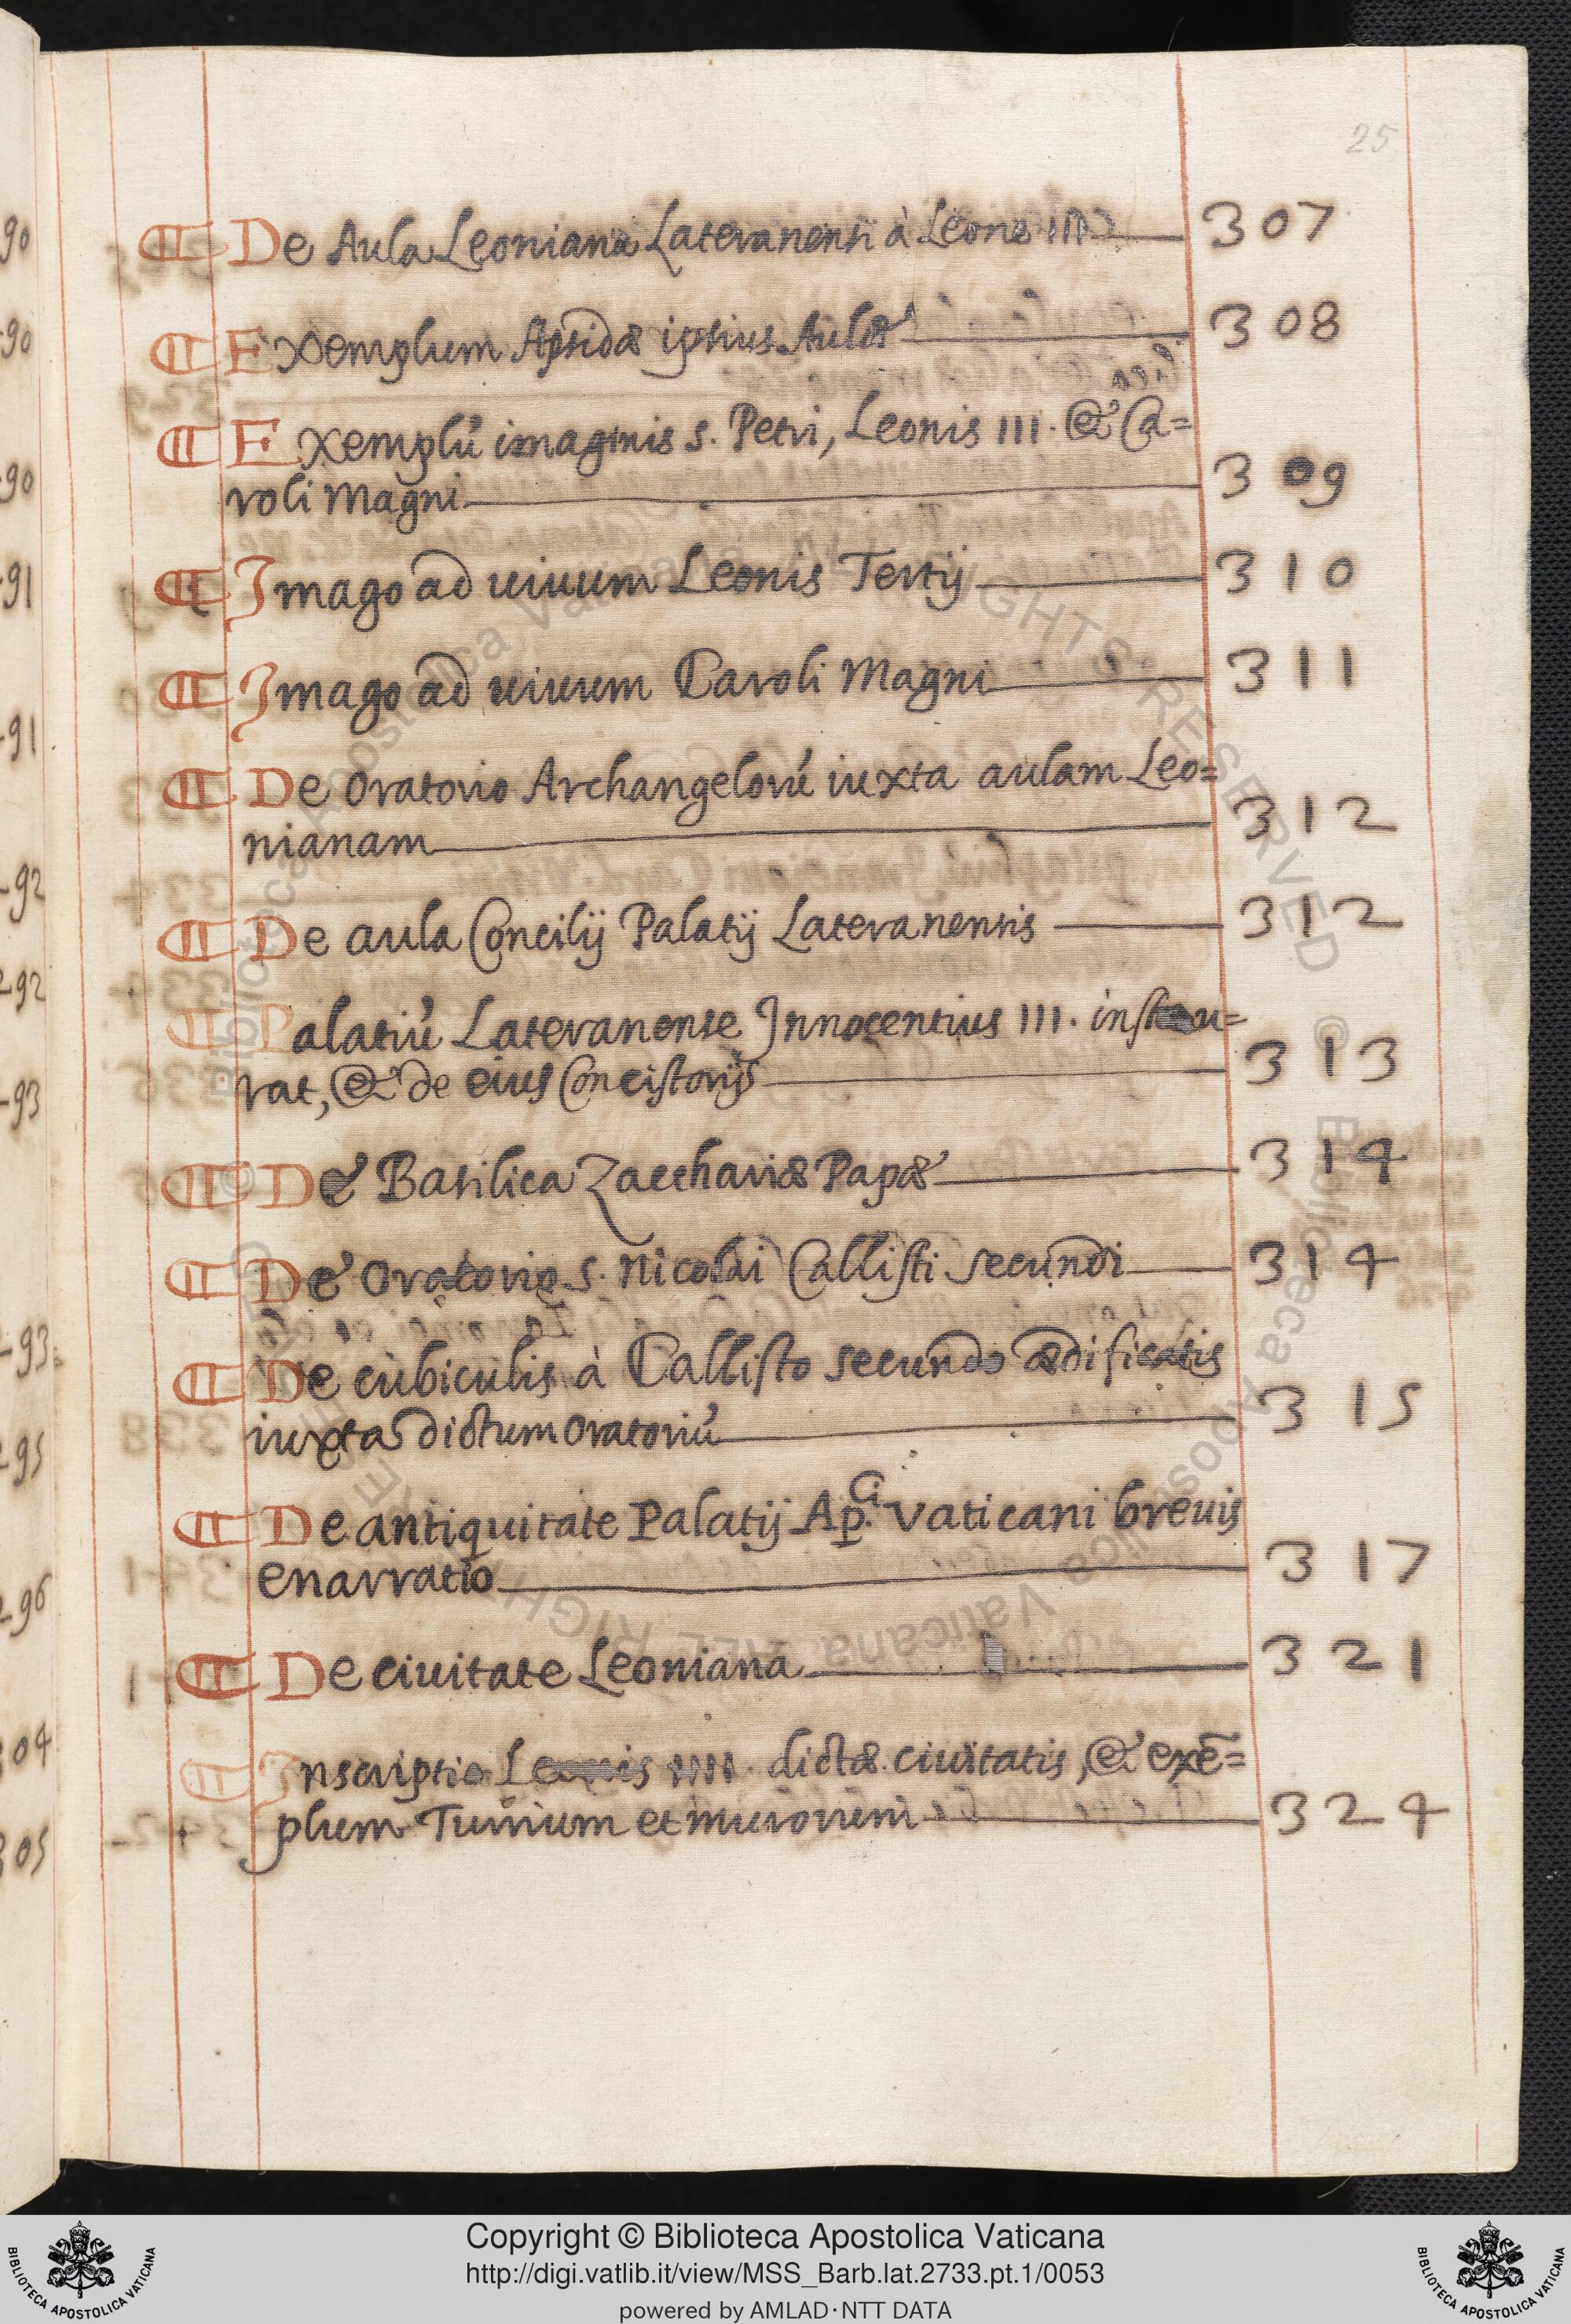 25
¶ De Aula Leoniana Lateranensi à Leone III 307
¶ Exemplum Apsidæ ipsius Aulæ 308
¶ Exemplũ imaginis s. Petri, Leonis III. & Ca=
roli Magni 309
¶ Imago ad uiuum Leonis Tertij 310
¶ Imago ad uiuum Caroli Magni 311
¶ De oratorio Archangelorũ iuxta aulam Leo=
nianam 312
¶ De aula Concilij Palatij Lateranensis 312
¶ Palatiũ Lateranense Innocentius III. instau=
rat, & de eius Concistorijs 313
¶ De Basilica Zacchariæ Papæ 314
¶ De Oratorio s. Nicolai Callisti secundi 314
¶ De cubiculis à Callisto secundo ædificatis
iuxta dictum oratoriũ 315
¶ De antiquitate Palatij Ap.ci Vaticani breuis
enarratio 317
¶ De ciuitate Leoniana 321
¶ Inscriptio Leonis IIII. dictæ ciuitatis, & exẽ=
plum Turrium et murorum 324
Copyright © Biblioteca Apostolica Vaticana
http://digi.vatlib.it/view/MSS_Barb.lat.2733.pt.1/0053
powered by AMLAD·NTT DATA
BIBLIOTECA APOSTOLICA VATICANA
BIBLIOTECA APOSTOLICA VATICANA